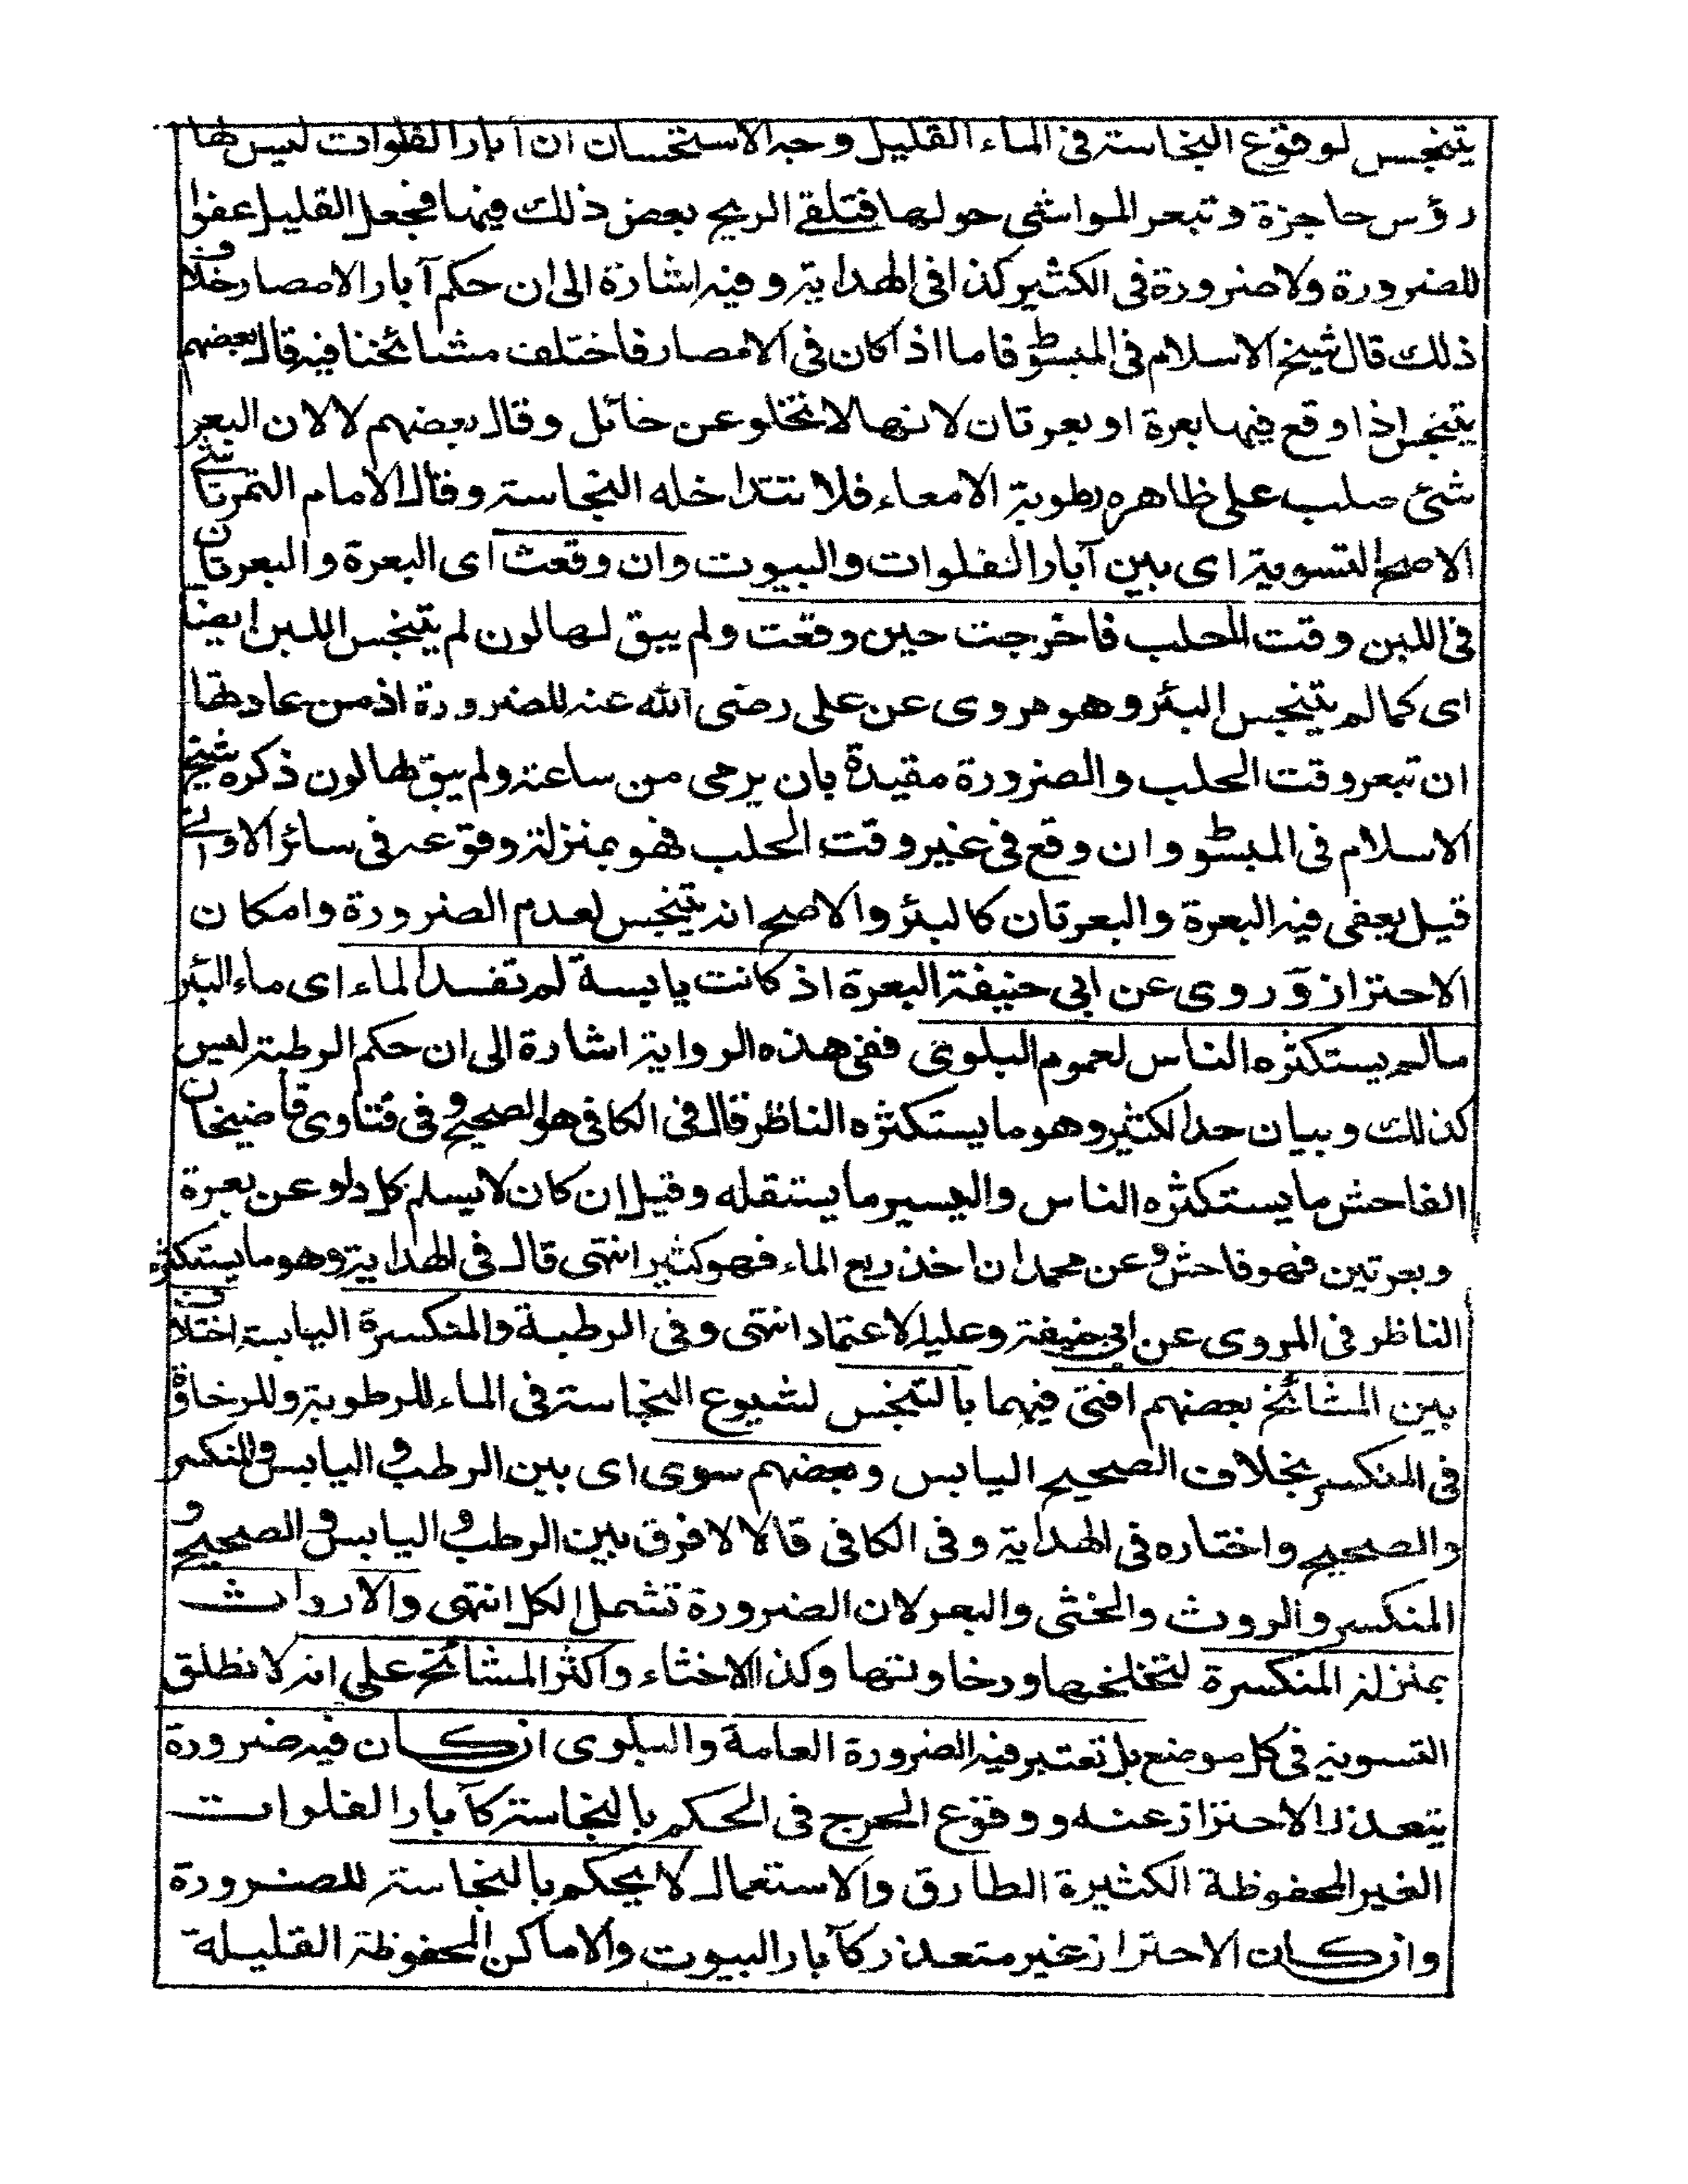 يتنجس لوقوع النجاسة فى الماء القليل وجه الاستحسان ان آبار الفلوات ليس لها
رؤس حاجزة وتبعر المواشى حولها فتلقى الريح بعض ذلك فيها فجعل القليل عفوا
للضرورة ولا ضرورة فى الكثير كذا فى الهداية وفيه اشارة الى ان حكم آبار الامصار خلاف
ذلك قال شيخ الاسلام فى المبسوط فاما اذا كان فى الامصار فاختلف مشائخنا فيه قال بعضهم
يتنجس اذا وقع فيها بعرة او بعرتان لانها لا تخلو عن حائل وقال بعضهم لا لان البعر
شئ صلب على ظاهره رطوبة الامعاء فلا تتداخله النجاسة وقال الامام التمرتاشى
الاصح التسوية اى بين آبار الفلوات والبيوت وان وقعت اى البعرة والبعرتان
فى اللبن وقت المحلب فاخرجت حين وقعت ولم يبق لها لون لم يتنجس اللبن ايضا
اى كما لم يتنجس البئر وهو مروى عن على رضى الله عنه للضرورة اذ من عادتها
ان تبعر وقت الحلب والضرورة مقيدة بان يرمى من ساعته ولم يبق لها لون ذكره شيخ
الاسلام فى المبسوط وان وقع فى غير وقت الحلب فهو بمنزلة وقوعه فى سائر الاوانى
قيل يعفى فيه البعرة والبعرتان كالبئر والاصح انه يتنجس لعدم الضرورة وامكان
الاحتراز وروى عن ابى حنيفة البعرة اذ كانت يابسة لم تفسد الماء اى ماء البئر
مالم يستكثره الناس لعموم البلوى ففى هذه الرواية اشارة الى ان حكم الرطبة ليس
كذلك وبيان حد الكثير وهو ما يستكثره الناظر قال فى الكافى هو الصحيح وفى فتاوى قاضيخان
الفاحش ما يستكثره الناس واليسير ما يستقله وقيل ان كان لا يسلم كل دلو عن بعرة
وبعرتين فهو فاحش وعن محمد ان اخذ ربع الماء فهو كثير انتهى قال فى الهداية وهو ما يستكثره
الناظر فى المروى عن ابى حنيفة وعليه الاعتماد انتهى وفى الرطبة والمنكسرة اليابسة اختلاف
بين المشائخ بعضهم افتى فيهما بالتنجس لشيوع النجاسة فى الماء للرطوبة وللرخاوة
فى المنكسر بخلاف الصحيح اليابس وبعضهم سوى اى بين الرطب واليابس والمنكسر
والصحيح واختاره فى الهداية وفى الكافى قالا لا فرق بين الرطب واليابس والصحيح و
المنكسر والروث والخثى والبعر لان الضرورة تشمل الكل انتهى والارواث
بمنزلة المنكسرة لتخلخها ورخاوتها وكذا الاخثاء واكثر المشائخ على انه لا نطلق
التسوية فى كل موضع بل تعتبر فيه الضرورة العامة والبلوى ان كان فيه ضرورة
يتعذر الاحتراز عنه ووقوع الحرج فى الحكم بالنجاسة كآبار الفلوات
الغير المحفوظة الكثيرة الطارق والاستعمال لا يحكم بالنجاسة للضرورة
وان كان الاحتراز غير متعذر كآبار البيوت والاماكن المحفوظة القليلة